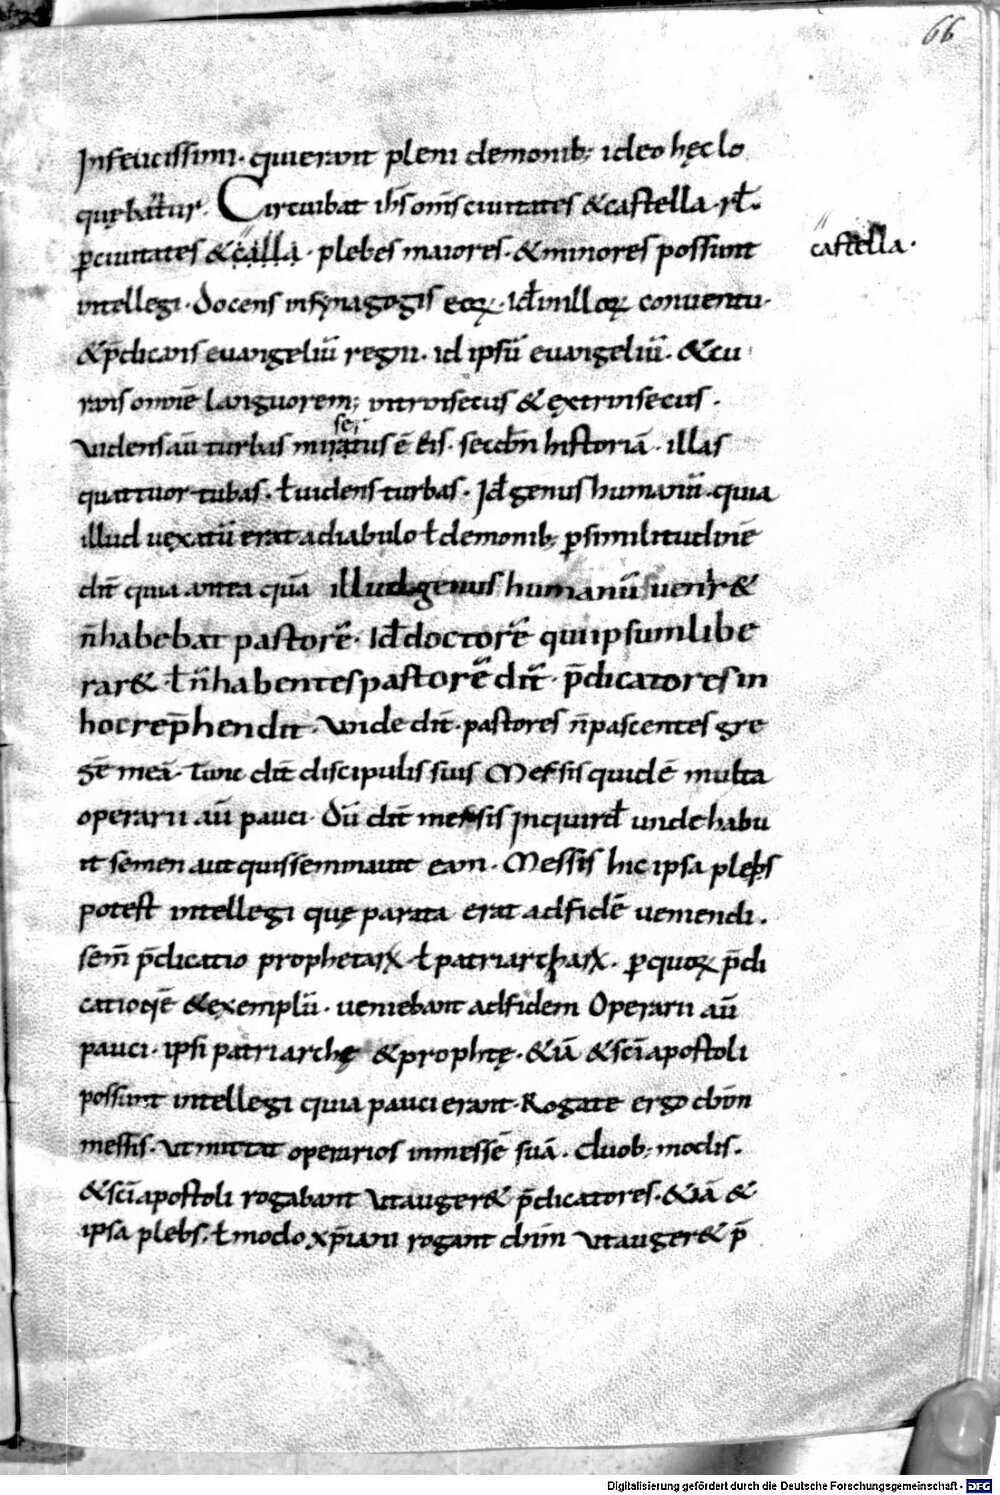 66
Infelicissimi· qui erant pleni demonib; ideo hęc lo
quębatur. Circuibat ihs om̅s ciuitates & castella· id ÷
p̲ ciuitates & calla· plebes maiores· & minores possunt
castella·
intellegi· docens in synagogis eoꝝ· Id÷ in illoꝝ conuentu·
& p̅dicans euangeliū regni· id ipsū euangeliū· & cu
rans omnē languorem; intrinsecus & extrinsecus·
uidens aū turbas miseratus ē eis· secdm̅ historiā· illas
quattuor turbas· ł uidens turbas· Id÷ genus humanū· quia
illud uexatū erat a diabulo ł demonib; p̲ similitudinē
dit̅ quia antea quā illud genus humanū uenir&
n̅ habebat pastorē· Id÷ doctorē qui ipsum libe
rar& ł n̅ habentes pastorē dit̅· p̅dicatores in
hoc rep̅hendit· Vnde dit̅· pastores n̅ pascentes gre
gē meā· Tunc dit̅ discipulis suis Messis quidē multa
operarii aū pauci· Dū dit̅ messis Inquird÷ unde habu
it semen aut quis seminauit eam· Messis hic ipsa plebs
potest intellegi quę parata erat ad fidē ueniendi·
sem̅ p̅dicatio prophetarꝝ ł patriarcharꝝ· p̲ quoꝝ p̅di
cationē & exemplū· ueniebant ad fidem Operarii aū
pauci· ipsi patriarchę & prophtę· & iā & sc̅i apostoli
possunt intellegi quia pauci erant· Rogate ergo dnm̅
messis· ut mittat operarios in messē suā· duob; modis·
& sc̅i apostoli rogabant ut auger& p̅dicatores· & iā &
ipsa plebs· ł modo xp̅iani rogant dnm̅ ut auger& p̅
Digitalisierung gefördert durch die Deutsche Forschungsgemeinschaft - DFG